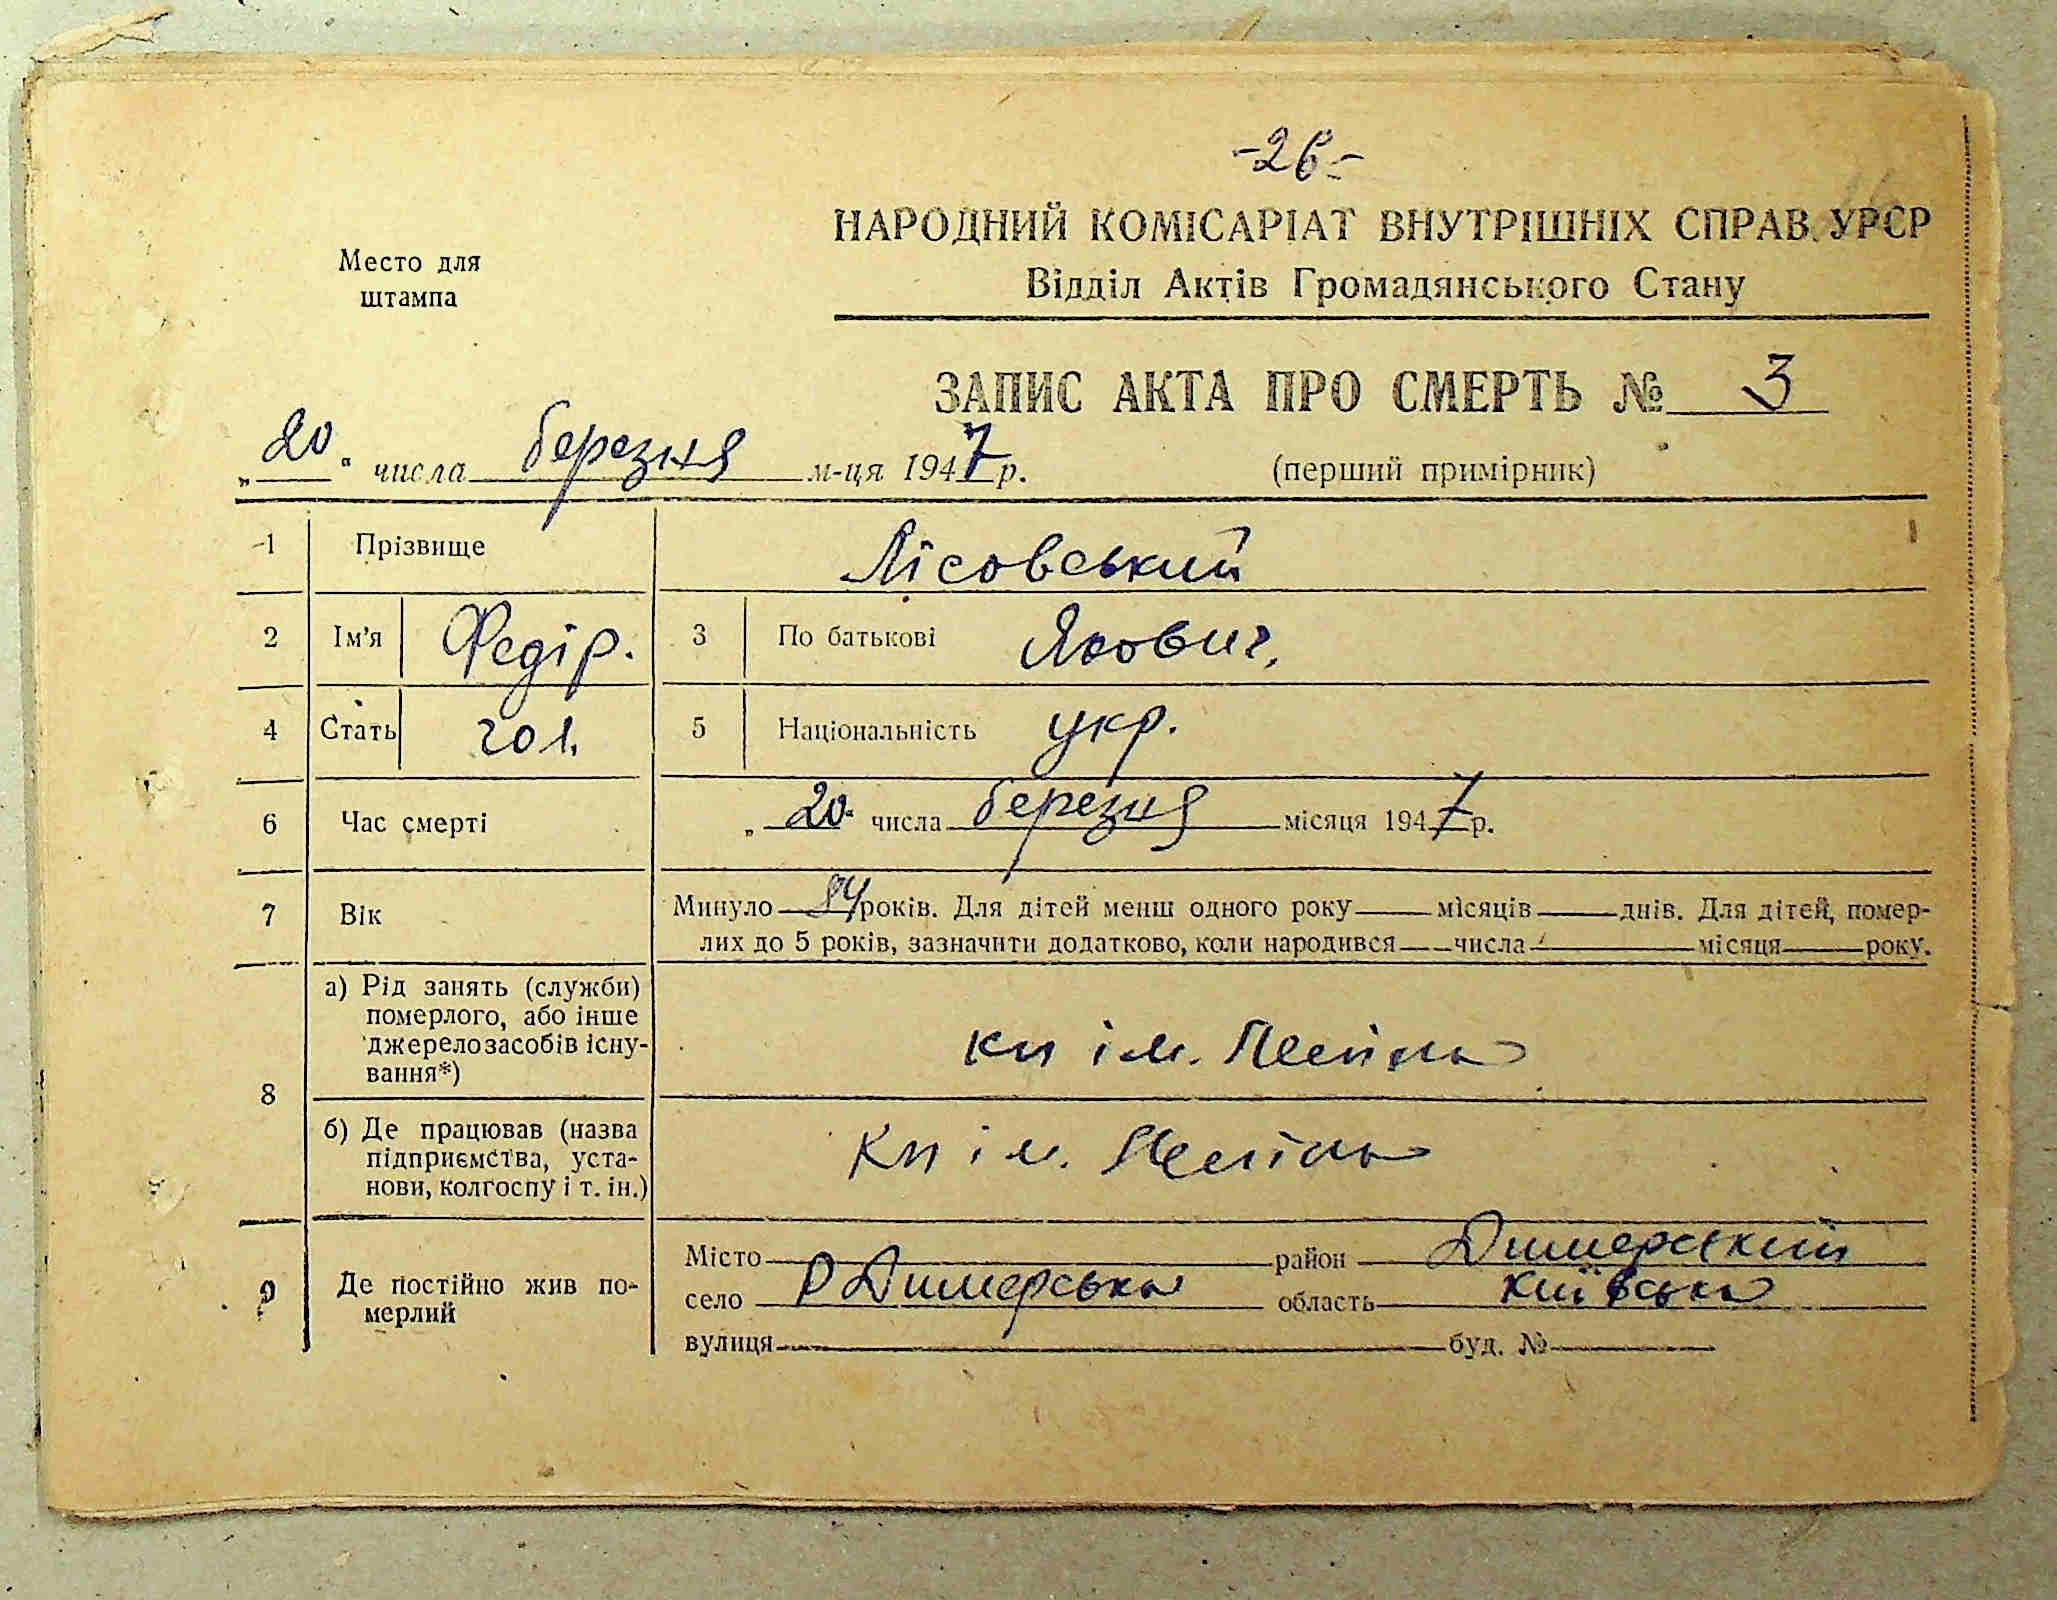 -26-
НАРОДНИЙ КОМІСАРІАТ ВНУТРІШНІХ СПРАВ УРСР
Відділ Актів Громадянського Стану
Место для
штампа
ЗАПИС АКТА ПРО СМЕРТЬ № 3
„20“ числа березня м-ця 1947 р.
(перший примірник)
1 Прізвище Лісовський
2 Ім'я Федір. 3 По батькові Якович,
4 Стать чол. 5 Національність укр.
6 Час смерті „20“ числа березня місяця 1947 р.
7 Вік Минуло 84 років. Для дітей менш одного року місяців днів. Для дітей, помер-
лих до 5 років, зазначити додатково, коли народився числа місяця року.
8 а) Рід занять (служби)
померлого, або інше
джерело засобів існу-
вання*)
кп ім. Леніна
б) Де працював (назва
підприємства, уста-
нови, колгоспу і т. ін.)
Кп ім. Леніна
9 Де постійно жив по-
мерлий
Місто район Димерський
село Р Димерська область Київська
вулиця буд. №